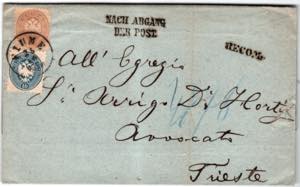 NACH ABGANG
DER POST
FIUME
RECOM.
All' Egregio
Sr. Arrigo Dr. Hortis
Avvocato
Trieste